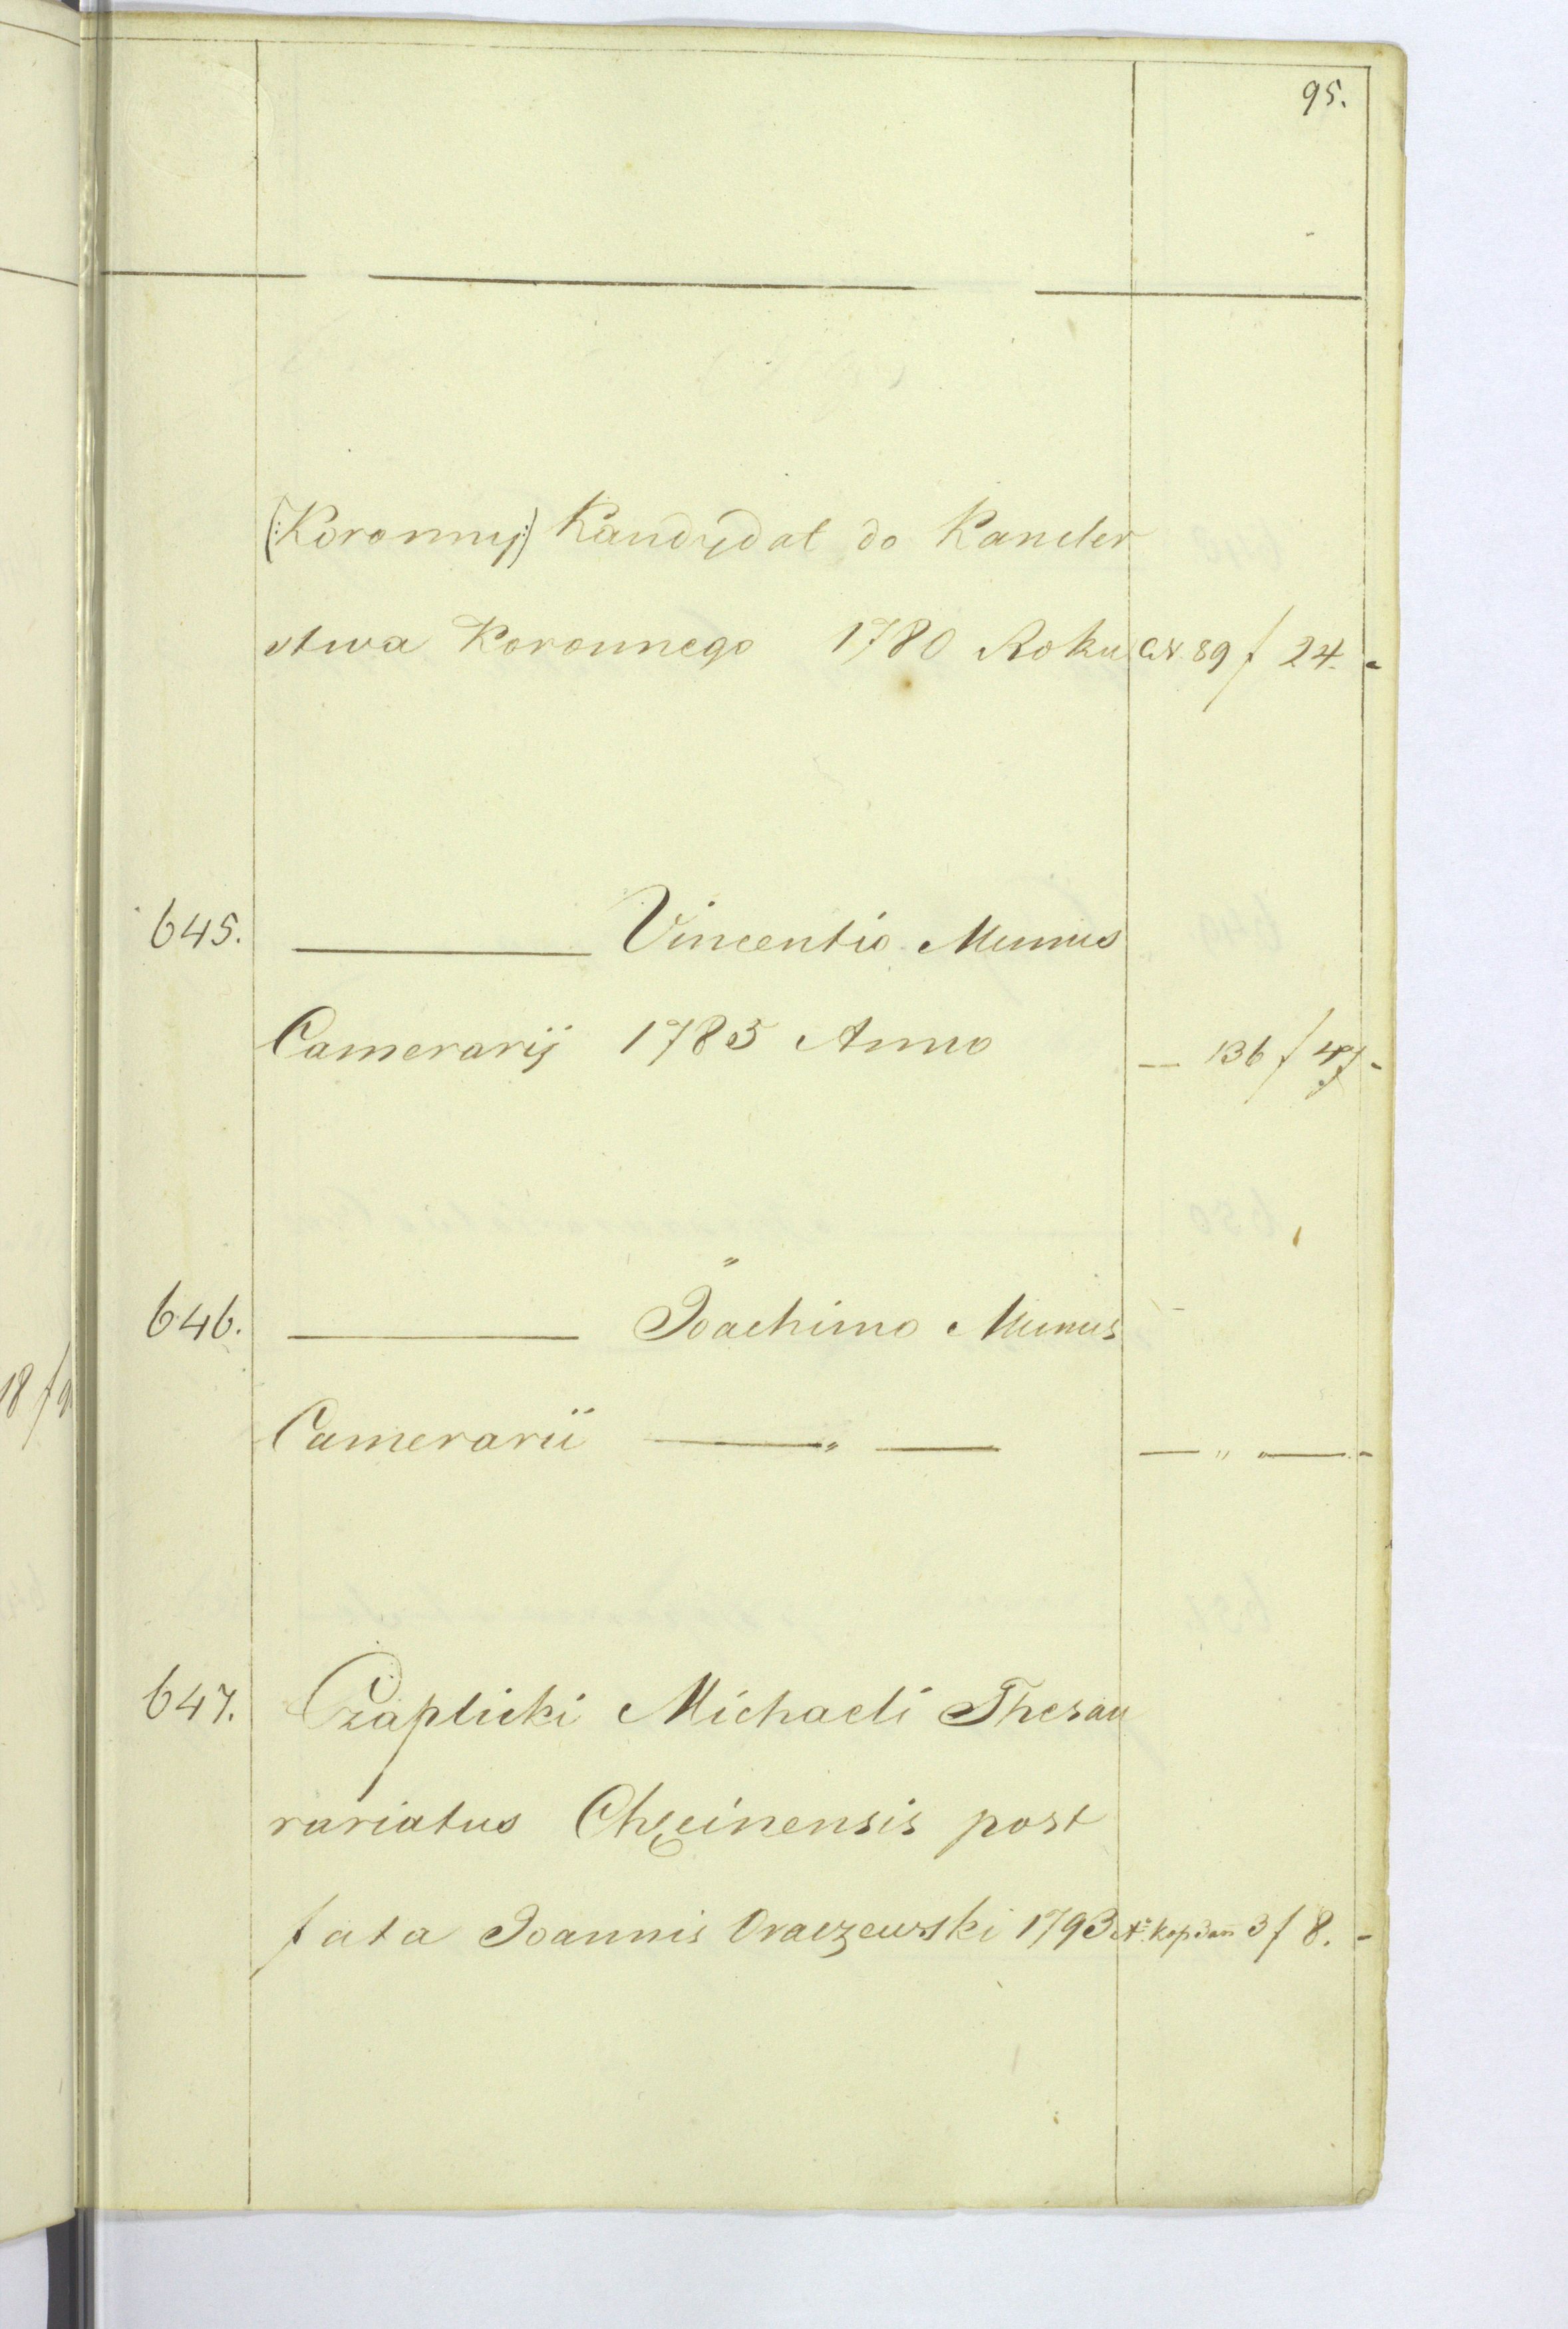 95.
(:Koronny:) Kandydat do Kancler
stwa Koronnego 1780 Roku 89 f 24.
645. ——— Vincentio Munus
Camerarij 1785 Anno — 136 f 47
646. ——— Joachimo Munus
Camerarii — " — — " —
647. Czaplicki Michaeli Thesau
rariatus Chęcinensis post
fata Joannis Oraczewski 1793 3 f 8.